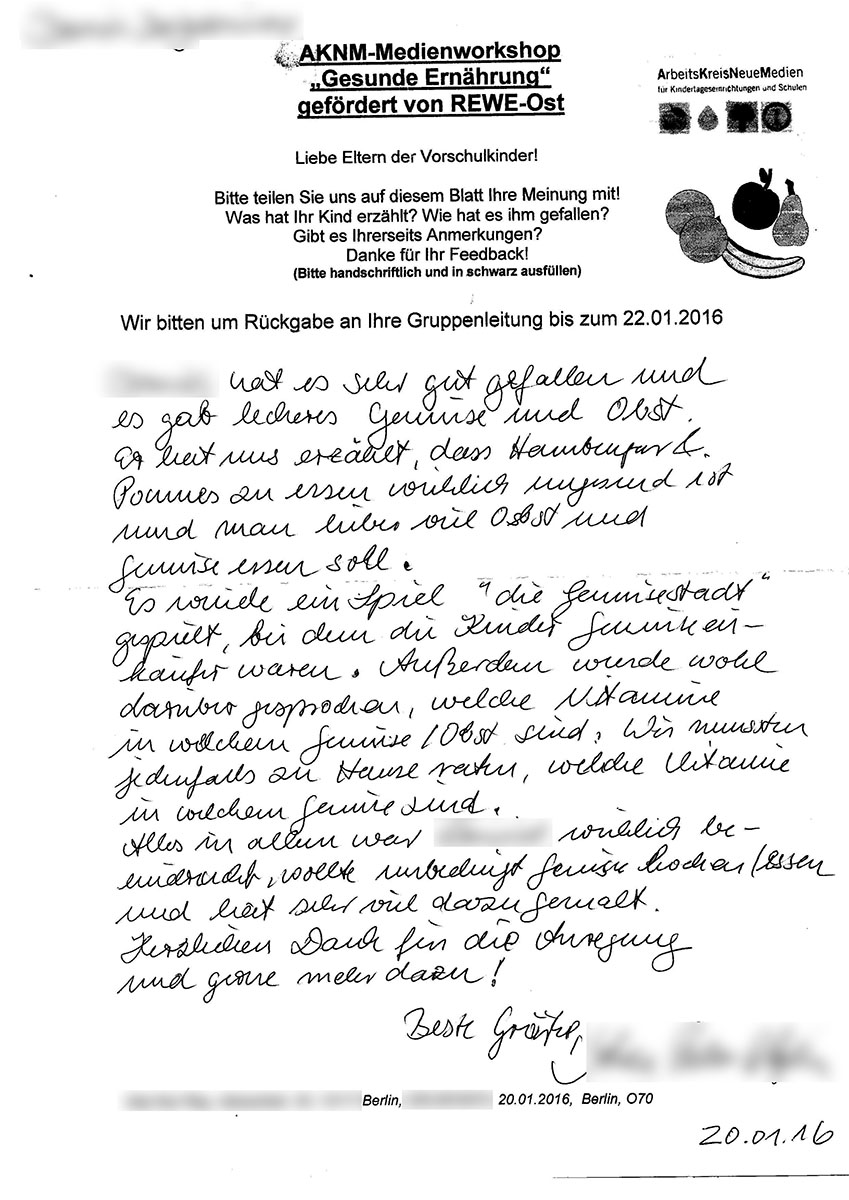 AKNM-Medienworkshop
„Gesunde Ernährung“
gefördert von REWE-Ost
ArbeitsKreisNeueMedien
für Kindertageseinrichtungen und Schulen
Liebe Eltern der Vorschulkinder!
Bitte teilen Sie uns auf diesem Blatt Ihre Meinung mit!
Was hat Ihr Kind erzählt? Wie hat es ihm gefallen?
Gibt es Ihrerseits Anmerkungen?
Danke für Ihr Feedback!
(Bitte handschriftlich und in schwarz ausfüllen)
Wir bitten um Rückgabe an Ihre Gruppenleitung bis zum 22.01.2016
hat es sehr gut gefallen und
es gab leckeres Gemüse und Obst.
Er hat uns erzählt, dass Hamburger &
Pommes zu essen wirklich ungesund ist
und man lieber viel Obst und
Gemüse essen soll.
Es wurde ein Spiel "die Gemüsestadt"
gespielt, bei dem die Kinder Gemüseein-
käufer waren. Außerdem wurde wohl
darüber gesprochen, welche Vitamine
in welchem Gemüse/Obst sind. Wir mussten
jedenfalls zu Hause raten, welche Vitamine
in welchem Gemüse sind.
Alles in allem war wirklich be-
eindruckt, wollte unbedingt Gemüse kochen/essen
und hat sehr viel dazu gemalt.
Herzlichen Dank für die Anregung
und gerne mehr dazu!
Beste Grüße,
Berlin, 20.01.2016, Berlin, O70
20.01.16